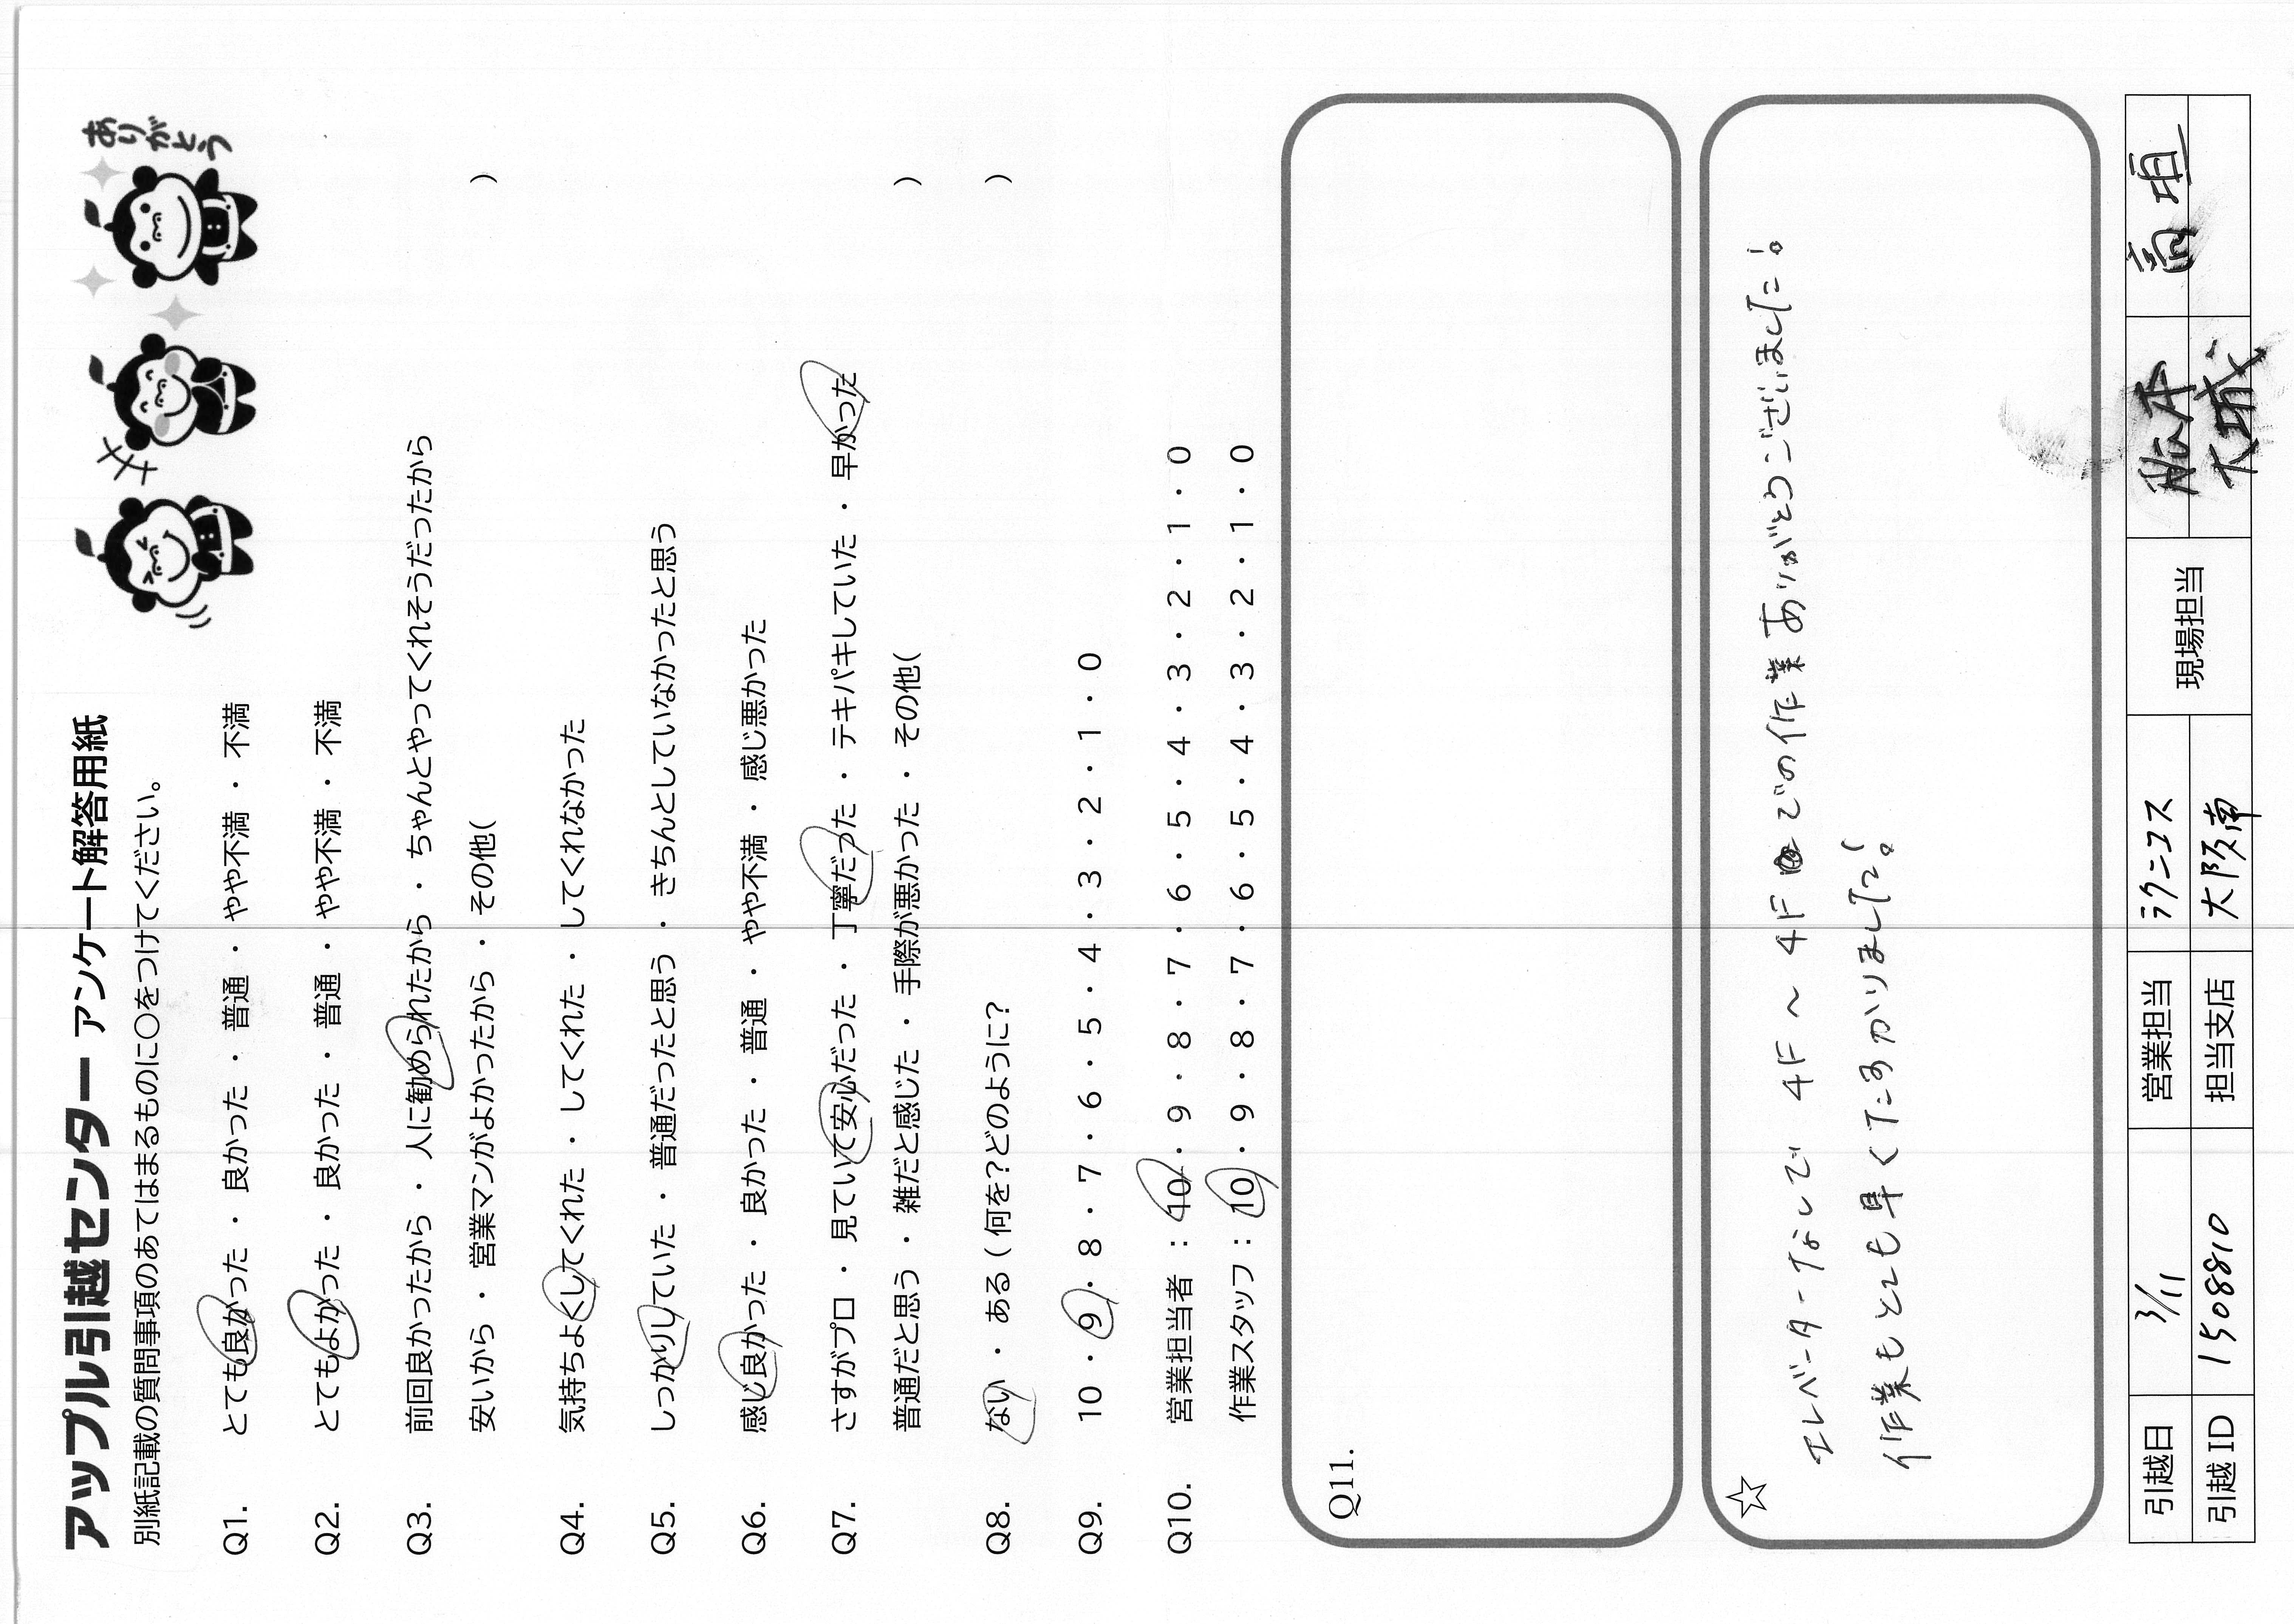 アップル引越センター アンケート解答用紙
ありがとう
別紙記載の質問事項のあてはまるものに〇をつけてください。
Q1. とても良かった ・ 良かった ・ 普通 ・ やや不満 ・ 不満
Q2. とてもよかった ・ 良かった ・ 普通 ・ やや不満 ・ 不満
Q3. 前回良かったから ・ 人に勧められたから ・ ちゃんとやってくれそうだったから
安いから ・ 営業マンがよかったから ・ その他( )
Q4. 気持ちよくしてくれた ・ してくれた ・ してくれなかった
Q5. しっかりしていた ・ 普通だったと思う ・ きちんとしていなかったと思う
Q6. 感じ良かった ・ 良かった ・ 普通 ・ やや不満 ・ 感じ悪かった
Q7. さすがプロ ・ 見ていて安心だった ・ 丁寧だった ・ テキパキしていた ・ 早かった
普通だと思う ・ 雑だと感じた ・ 手際が悪かった ・ その他( )
Q8. ない ・ ある ( 何を？どのように？ )
Q9. 10 ・ 9 ・ 8 ・ 7 ・ 6 ・ 5 ・ 4 ・ 3 ・ 2 ・ 1 ・ 0
Q10. 営業担当者 : 10 ・ 9 ・ 8 ・ 7 ・ 6 ・ 5 ・ 4 ・ 3 ・ 2 ・ 1 ・ 0
作業スタッフ : 10 ・ 9 ・ 8 ・ 7 ・ 6 ・ 5 ・ 4 ・ 3 ・ 2 ・ 1 ・ 0
Q11.
☆
エレベーターなしで 4F 〜 4F での作業ありがとうございました!。
作業もとても早くてたすかりました!。
引越日 3/11 営業担当 ラクニコス 現場担当 松本 高垣
引越ID 1508810 担当支店 大阪南 大城